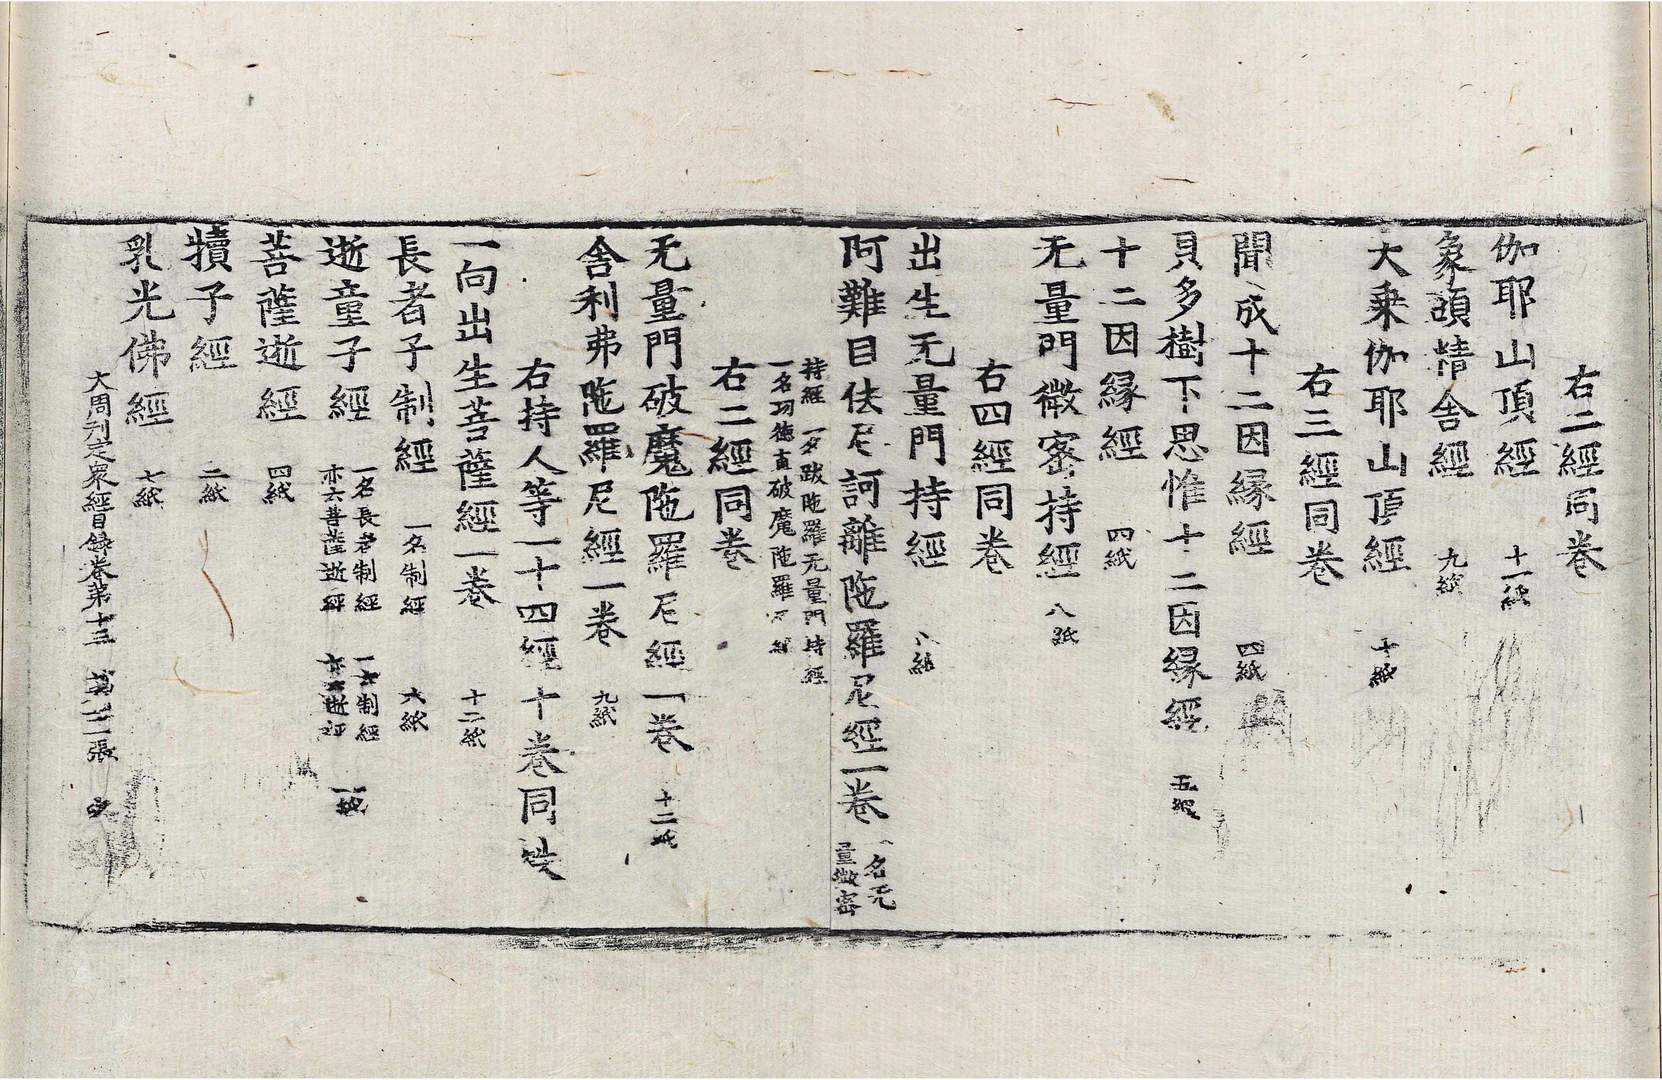 右二經同卷
伽耶山頂經 十一紙
象頭精舍經 九紙
大乘伽耶山頂經 十紙
右三經同卷
聞成十二因緣經 四紙
貝多樹下思惟十二因緣經 五紙
十二因緣經 四紙
无量門微密持經 八紙
右四經同卷
出生无量門持經 八紙
阿難目佉尼訶離陁羅尼經一卷 一名无
量微密
持經 一名跋陁羅无量門持經
一名功德直破魔陁羅尼經
右二經同卷
无量門破魔陁羅尼經一卷 十二紙
舍利弗陁羅尼經一卷 九紙
右持人等一十四經十卷同帙
一向出生菩薩經一卷 十二紙
長者子制經 一名制經 六紙
逝童子經 一名長者制經 一名制經
亦云菩薩逝經 亦云逝經 二紙
菩薩逝經 四紙
犢子經 二紙
乳光佛經 七紙
大周刊定衆經目錄卷第十三 第二張